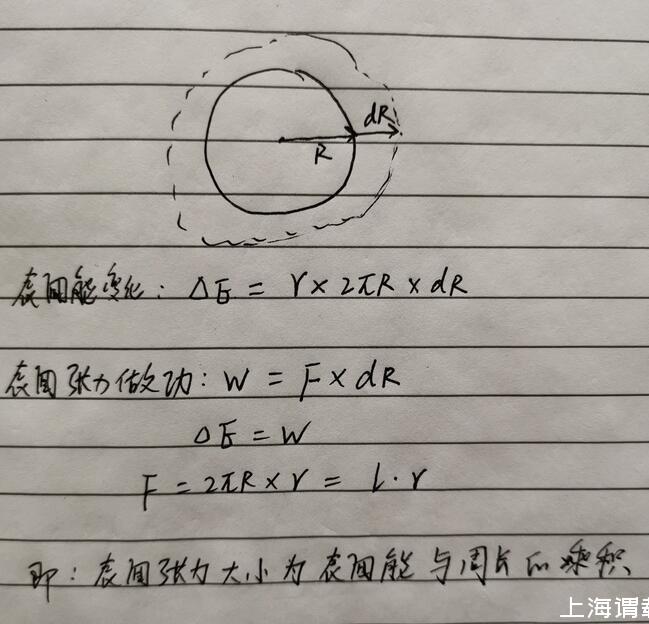 dR
R
表面能变化: ΔE = γ × 2πR × dR
表面张力做功: W = F × dR
ΔE = W
F = 2πR × γ = L · γ
即: 表面张力大小为表面能与周长的乘积
上海谓载